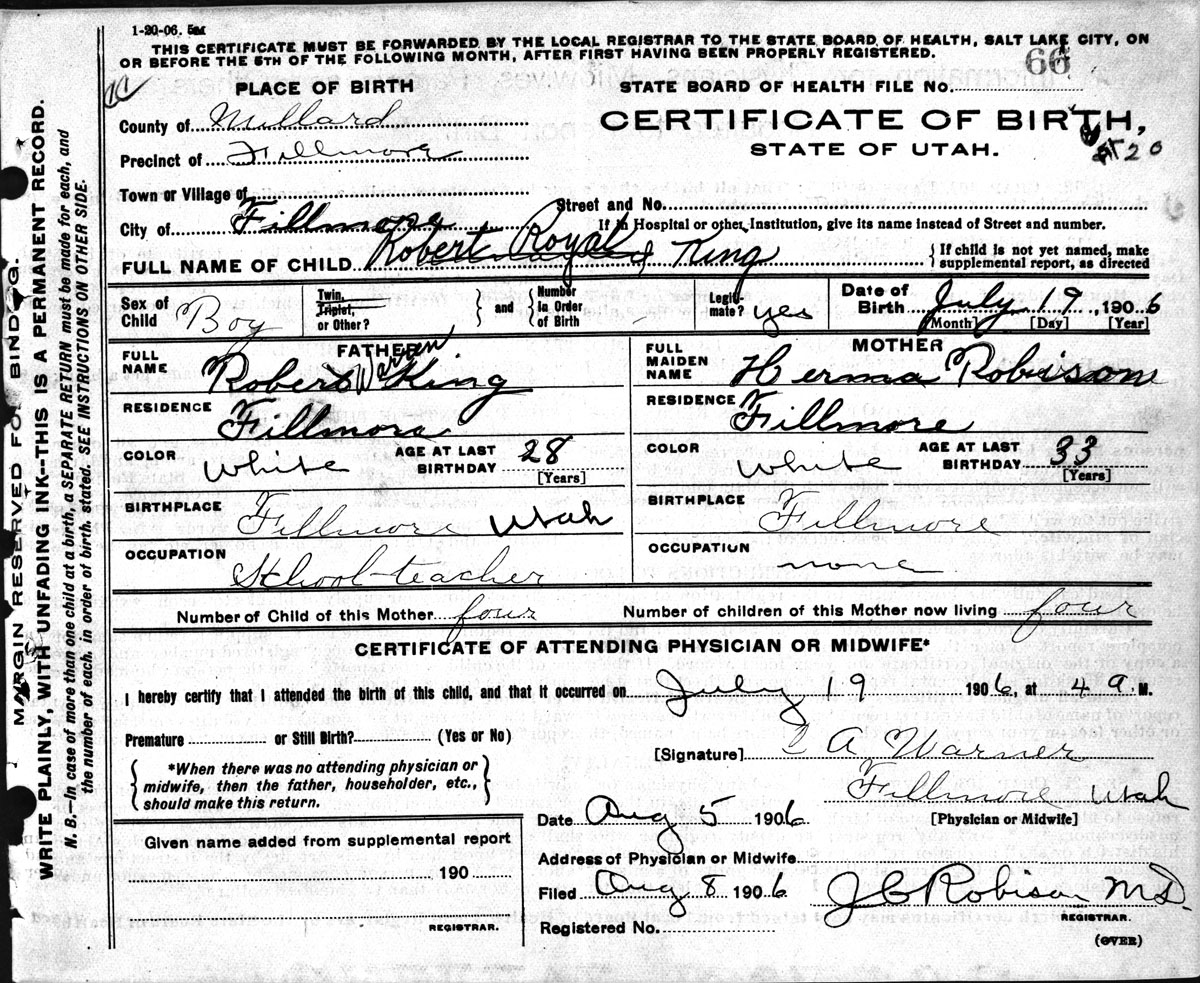 1-20-06. 5M
THIS CERTIFICATE MUST BE FORWARDED BY THE LOCAL REGISTRAR TO THE STATE BOARD OF HEALTH, SALT LAKE CITY, ON
OR BEFORE THE 5TH OF THE FOLLOWING MONTH, AFTER FIRST HAVING BEEN PROPERLY REGISTERED.
66
PLACE OF BIRTH
STATE BOARD OF HEALTH FILE NO.
County of Millard
CERTIFICATE OF BIRTH,
Precinct of Fillmore
STATE OF UTAH.
20
Town or Village of
Street and No.
City of Fillmore
If in Hospital or other Institution, give its name instead of Street and number.
FULL NAME OF CHILD Robert Royal King
If child is not yet named, make
supplemental report, as directed
Sex of Child Boy
Twin, Triplet, or Other?
and
Number in Order of Birth
Legitimate? yes
Date of Birth July 19, 1906
[Month] [Day] [Year]
FATHER
FULL NAME Robert Warren King
MOTHER
FULL MAIDEN NAME Herma Robison
RESIDENCE Fillmore
RESIDENCE Fillmore
COLOR White
AGE AT LAST BIRTHDAY 28 [Years]
COLOR White
AGE AT LAST BIRTHDAY 33 [Years]
BIRTHPLACE Fillmore Utah
BIRTHPLACE Fillmore
OCCUPATION School-teacher
OCCUPATION none
Number of Child of this Mother four
Number of children of this Mother now living four
CERTIFICATE OF ATTENDING PHYSICIAN OR MIDWIFE*
I hereby certify that I attended the birth of this child, and that it occurred on July 19 1906, at 4 a. M.
Premature or Still Birth? (Yes or No)
[Signature] A Warner
*When there was no attending physician or
midwife, then the father, householder, etc.,
should make this return.
Fillmore Utah
[Physician or Midwife]
Date Aug 5 1906
Given name added from supplemental report
190
REGISTRAR.
Address of Physician or Midwife
Filed Aug 8 1906
J C Robison MD.
REGISTRAR.
Registered No.
(OVER)
MARGIN RESERVED FOR BINDING.
WRITE PLAINLY, WITH UNFADING INK--THIS IS A PERMANENT RECORD.
N. B.—In case of more than one child at a birth, a SEPARATE RETURN must be made for each, and
the number of each, in order of birth, stated. SEE INSTRUCTIONS ON OTHER SIDE.